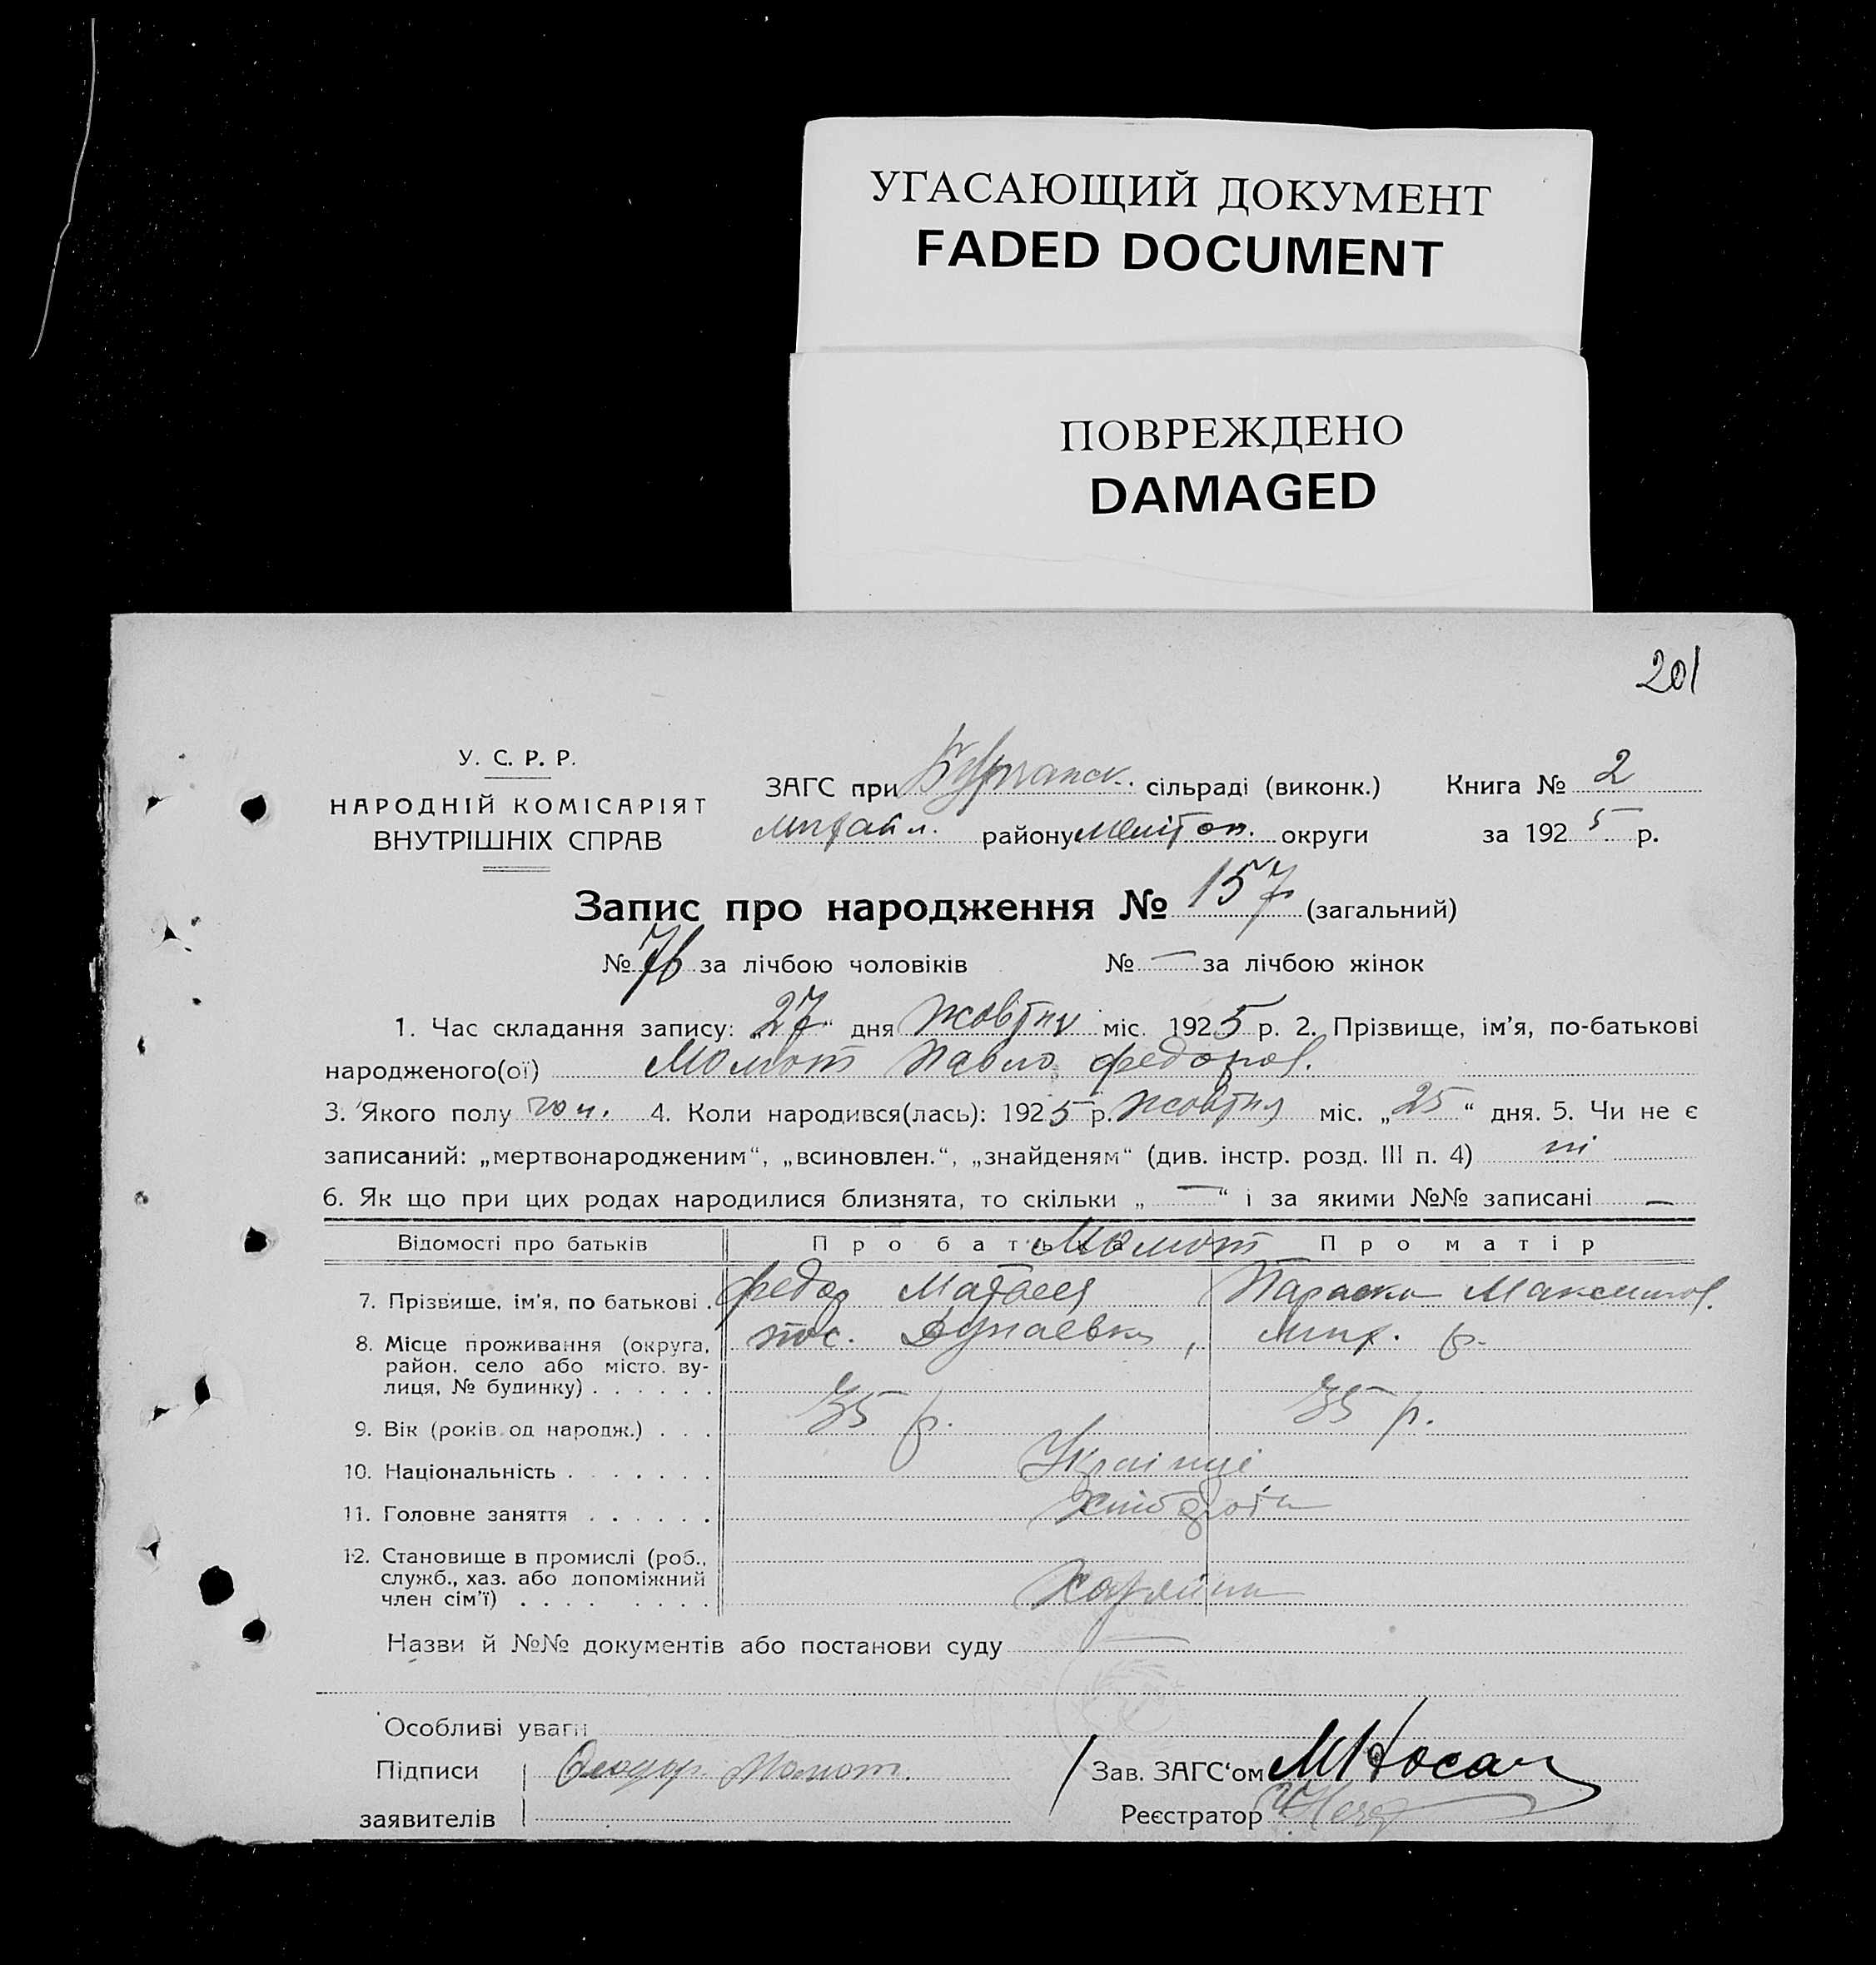 УГАСАЮЩИЙ ДОКУМЕНТ
FADED DOCUMENT
ПОВРЕЖДЕНО
DAMAGED
201
У. С. Р. Р.
НАРОДНІЙ КОМІСАРІЯТ
ВНУТРІШНІХ СПРАВ
ЗАГС при сільраді (виконк.) Книга № 2
Михайл. району Мелітоп. округи за 1925 р.
Запис про народження № 157 (загальний)
№ 76 за лічбою чоловіків № — за лічбою жінок
1. Час складання запису: 27 дня жовтня міс. 1925 р. 2. Прізвище, ім'я, по-батькові
народженого(ої) Момот Павло Федоров.
3. Якого полу чол. 4. Коли народився(лась): 1925 р. жовтня міс. „25“ дня. 5. Чи не є
записаний: „мертвонародженим“, „всиновлен.“, „знайденям“ (див. інстр. розд. III п. 4) ні
6. Як що при цих родах народилися близнята, то скільки „—“ і за якими №№ записані —
Відомості про батьків Про батька Момот Про матір
7. Прізвище, ім'я, по батькові . Федор Матвея Параска Максимов.
8. Місце проживання (округа, пос. Дунаевка, мих. р.
район, село або місто, ву-
лиця, № будинку) . . . . . .
9. Вік (років од народж.) . . . 35 р. 35 р.
10. Національність . . . . . . . Українці
11. Головне заняття . . . . . . Хліборо
12. Становище в промислі (роб.,
служб., хаз. або допоміжний
член сім'ї) . . . . . . . .
Назви й №№ документів або постанови суду —
Особливі уваги
Підписи Момот. Зав. ЗАГС'ом МНосач
заявителів Реєстратор